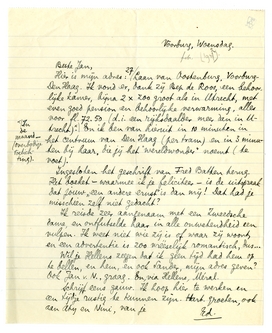 Voorburg, Woensdag.
Beste Jan,
Hier is mijn adres: 27, Laan van Oostenburg, Voorburg-
Den Haag. Ik vond er, dank zij Bep de Roos, een behoor-
lijke kamer, bijna 2 x zoo groot als in Utrecht, met
even goed pension en behoorlijke verwarming, alles
voor fl. 72.50 (d.i. een rijksdaalder meer dan in U-
trecht). En ik ben van hieruit in 10 minuten in
het centrum van Den Haag (per tram) en in 3 minu-
ten bij haar, die jij het "wereldwonder" noemt (de
roos).
In de
maand
Ingesloten het geschrift van Fred Batten terug.
Het boeket - waarmee ik je feliciteer - is de uitspraak
dat jouw, een andere ernst is dan mij! Dat had je
misschien zelf niet gedacht?
Ik reisde zeer aangenaam met een Zweedsche
dame, en ontfutselde haar in alle onwetendheid een
vulpen. Ik weet niet wie zij is of waar zij woont,
en een advertentie is zoo vreeselijk romantisch, hum.
Wil je Hellens zeggen dat ik geen tijd had hem op
te bellen, en hem, en ook Vander, mijn adres geven?
Ook Jan v. N., graag. En, via Hellens, Méral.
Schrijf eens gauw. Ik hoop hier te werken en
een tijdje rustig te kunnen zijn. Hart. groeten, ook
aan Aby en Mini, van je
Ed.